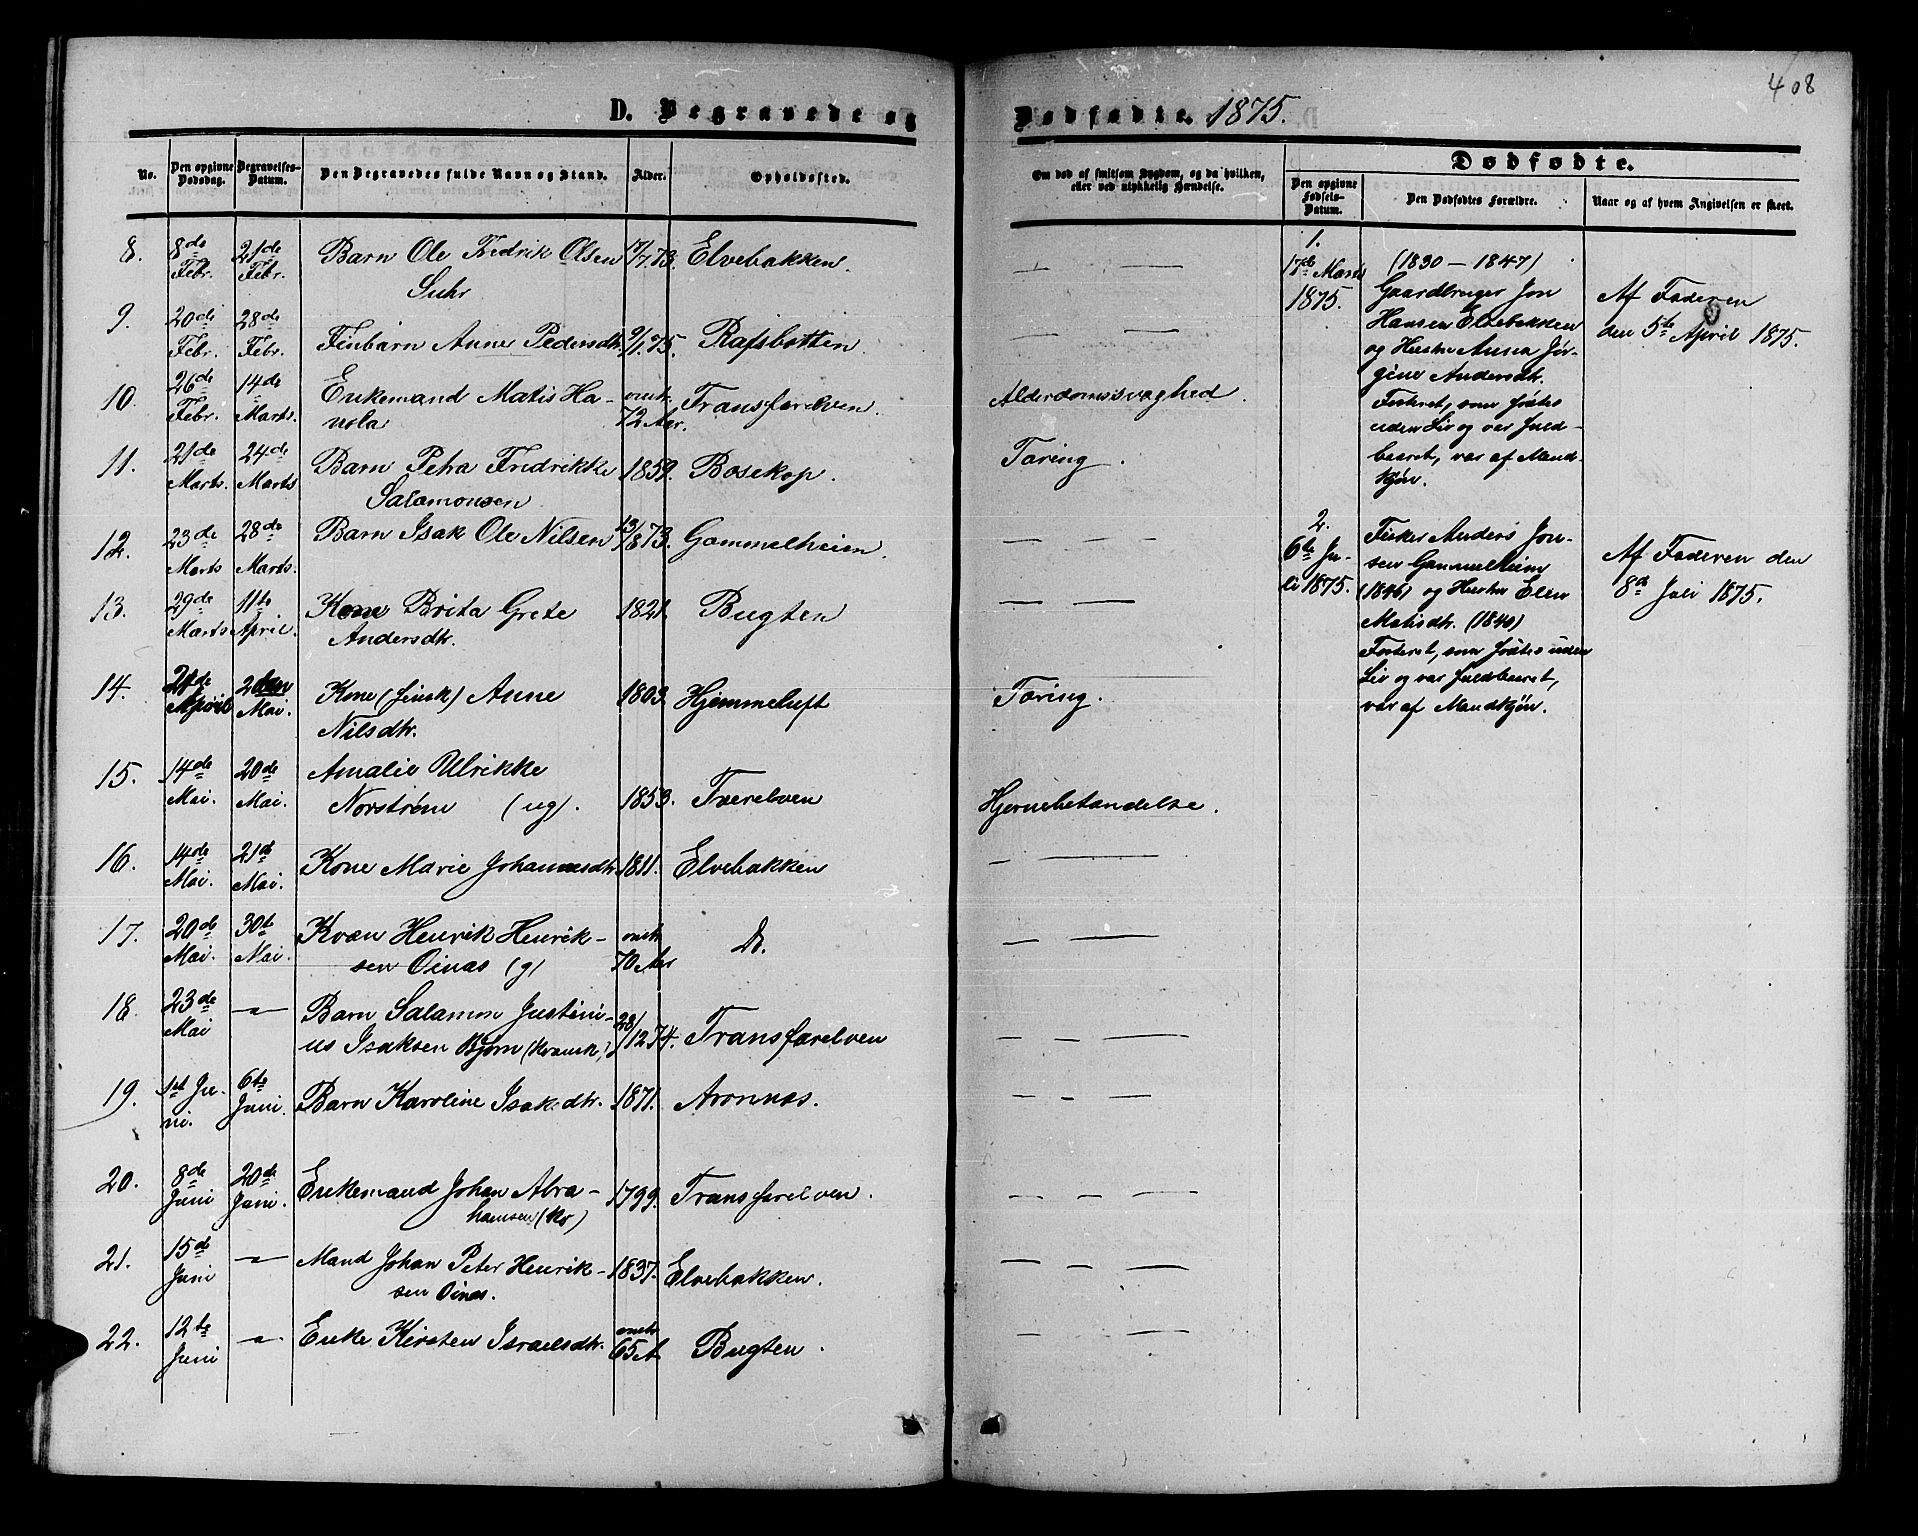 408
D. Begravede og Dødfødte. 1875.
No. Den opgivne Dødsdag. Begravelses-Datum. Den Begravedes fulde Navn og Stand. Alder. Opholdssted.
Om død af smitsom Sygdom, og da hvilken, eller ved ulykkelig Hændelse.
Dødfødte.
Den opgivne Fødsels-Datum. Den Dødfødtes Forældre. Naar og af hvem Angivelsen er skeet.
8. 8de Febr. 21de Febr. Barn Ole Fredrik Olsen 17/7 73. Elvebakken.
Suhr
9. 20de Febr. 28de Febr. Finbarn Anne Pedersdtr. 9/1 75. Rafsbotten.
10. 26de Febr. 14de Marts. Enkemand Matis Ha- omtr. 72 Aar. Transfarelven. Alderdomssvaghed.
nola
11. 21de Marts. 24de Marts Barn Petra Fredrikke 1859. Bosekop. Tæring.
Salamonsen
12. 23de Marts 28de Marts. Barn Isak Ole Nilsen 13/1873. Gammelheien.
13. 29de Marts 11te April. Kone Brita Grete 1821. Bugten
Andersdtr.
14. 21de April 2den Mai. Kone (finsk) Anne 1803. Hjemmeluft Tæring.
Nilsdtr.
15. 14de Mai. 20de Mai. Amalie Ulrikke
Norstrøm (ug). 1853. Tverelven Hjernebetændelse.
16. 14de Mai. 21de Mai. Kone Marie Johannesdtr. 1811. Elvebakken
17. 20de Mai. 30te Mai. Kvæn Henrik Henrik- omtr. 70 Aar Do.
sen Oinas (g)
18. 23de Mai — Barn Salamon Justini- 28/12 74. Transfarelven
us Isaksen Bjørn (kvænsk)
19. 1ste Ju- 6te Juni. Barn Karoline Isaksdtr. 1871. Aronnæs.
ni.
20. 8de Juni 20de Juni. Enkemand Johan Abra- 1799. Transfarelven.
hamsen (Kv)
21. 15de Juni — Mand Johan Peter Henrik- 1837. Elvebakken.
sen Oinas.
22. 12te Juni — Enke Kirsten Israelsdtr. omtr. 65 A Bugten.
1.
17de Marts 1875.
(1830 — 1847)
Gaardbruger Jon
Hansen Elvebakken
og Hustru Anna Jør-
gine Andersdtr.
Fosteret, som fødtes
uden Liv og var fuld-
baaret, var af Mand-
kjøn.
Af Faderen
den 5te April 1875.
2.
6te Ju-
li 1875.
Fisker Anders Jon-
sen Gammelheim
(1846) og Hustru Elen
Matisdtr. (1840)
Fosteret, som fødtes uden
Liv og var fuldbaaret,
var af Mandkjøn.
Af Faderen den
8de Juli 1875.